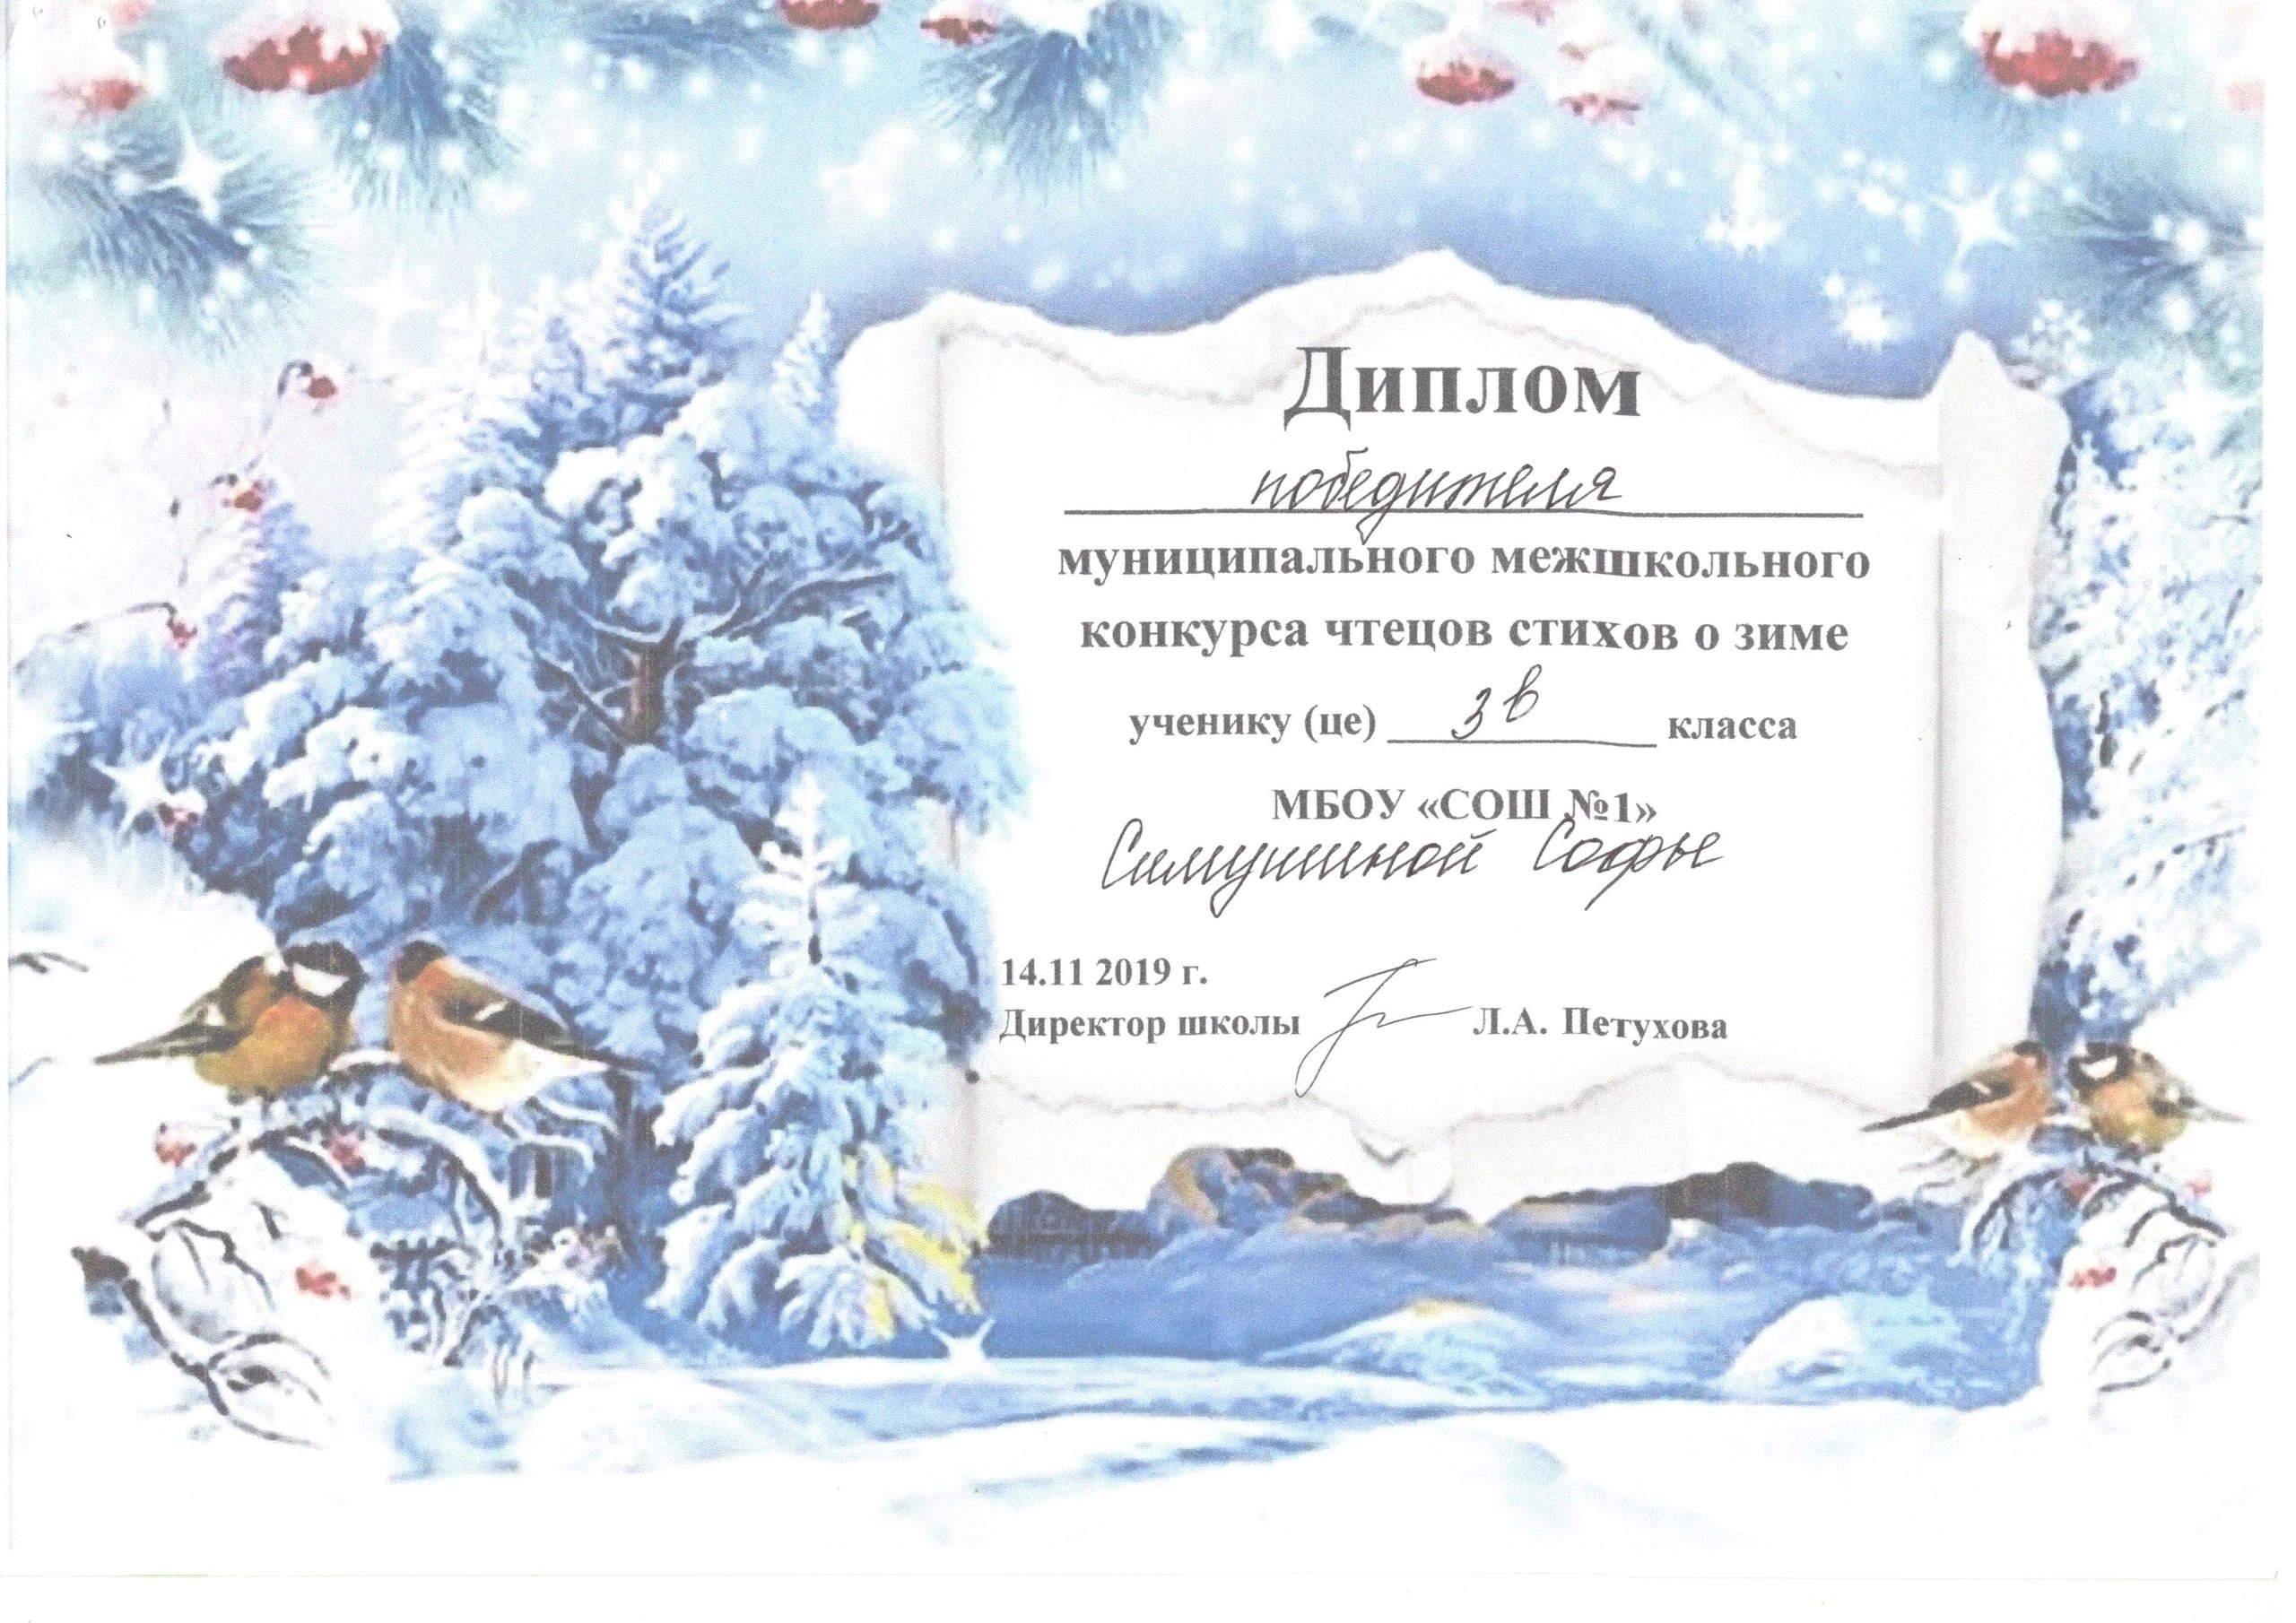 Диплом
победителя
муниципального межшкольного
конкурса чтецов стихов о зиме
ученику (це) 3в класса
МБОУ «СОШ №1»
Симушиной Софье
14.11 2019 г.
Директор школы Л.А. Петухова